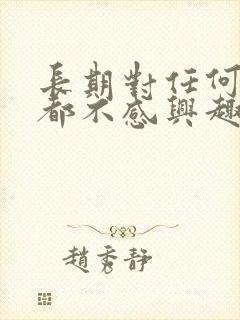 長期對任何
都不感興趣
趙秀靜